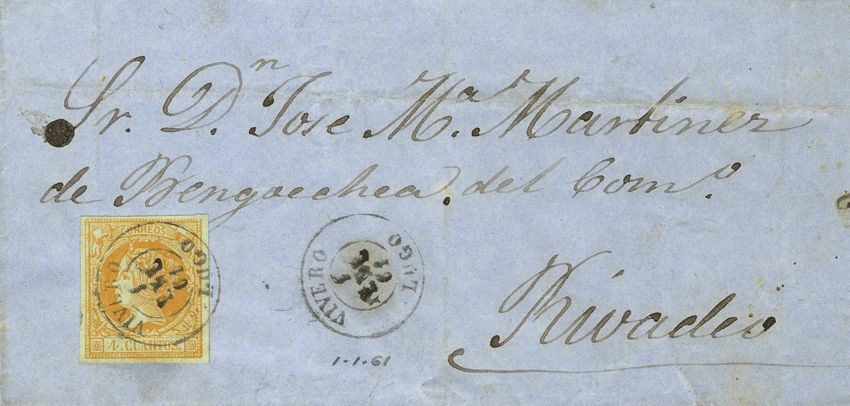 Sr. Dn Jose Ma. Martinez
de Mengoechea. del Como.
Rivadeo
CORREOS
4 CUARTOS.
VIVERO
LUGO
VIVERO
1
ENE
61
LUGO
1-1-61